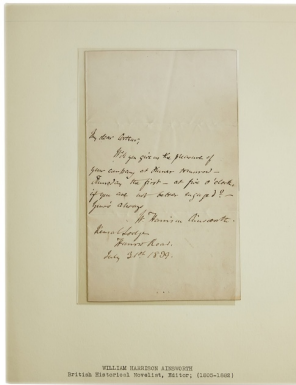 My dear
Will you give us the pleasure of
your company at dinner tomorrow –
Thursday the first – at five o'clock,
if you are not better engaged?
Yours always
W. Harrison Ainsworth
Kensal Lodge
Harrow Road.
July 31st 1839.
WILLIAM HARRISON AINSWORTH
British Historical Novelist, Editor, (1805-1882)